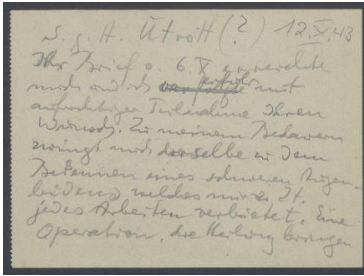 S. g. H. Utrott (?) 12.X.43
Ihr Brief v. 6. X erreichte
mich und ich erfuhr mit
aufrichtiger Teilnahme Ihren
Wunsch. Zu meinem Bedauern
zwingt mich derselbe zu dem
Bekennen eines schweren Augen-
leidens welches mir z. Zt.
jedes Arbeiten verbietet. Eine
Operation, die Heilung bringen